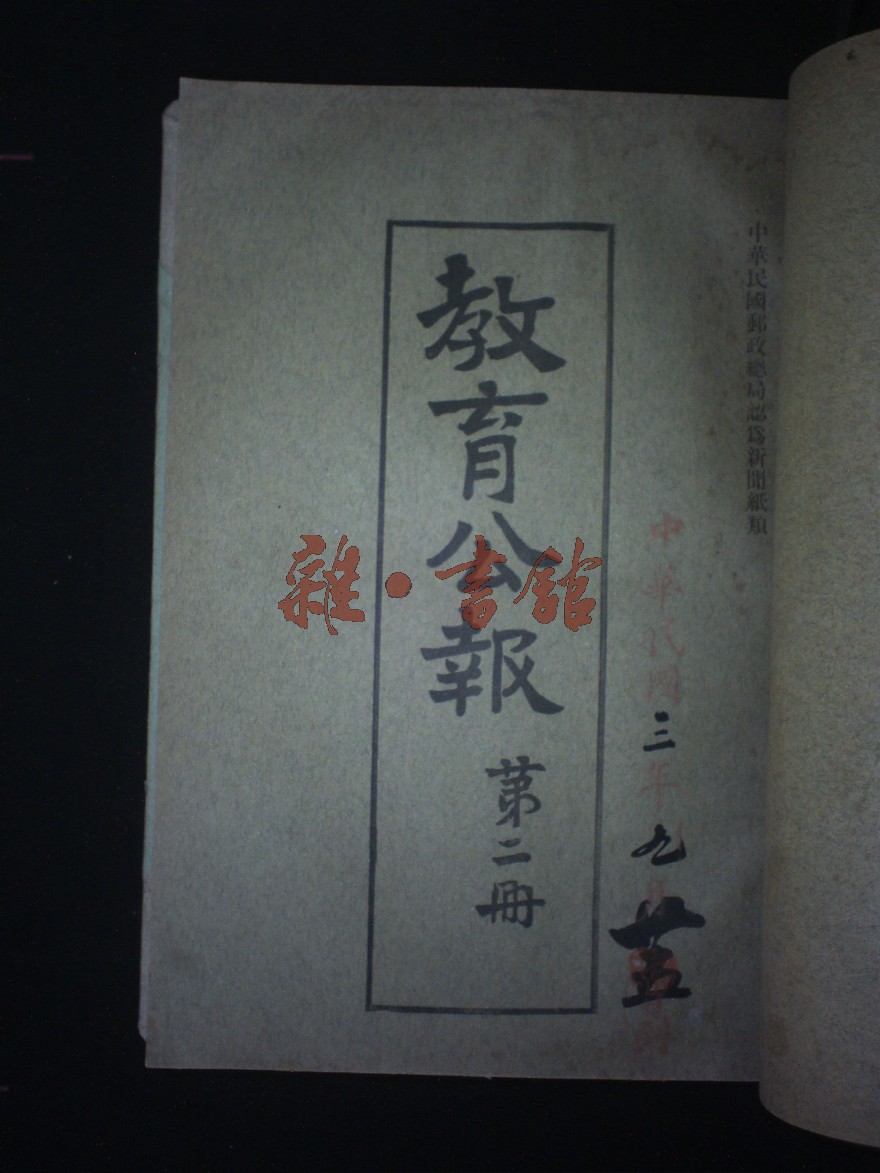 中華民國郵政總局認爲新聞紙類
中華民國三年九月廿五
教育公報
第二冊
雜·書舘